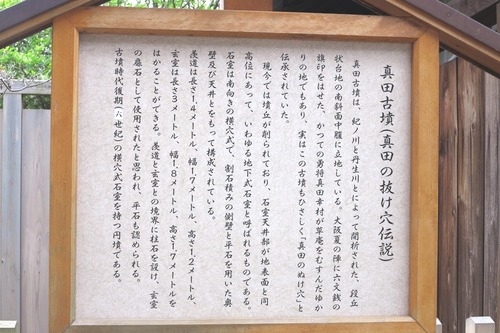 真田古墳(真田の抜け穴伝説)
真田古墳は、紀ノ川と丹生川とによって開析された、段丘
状台地の南斜面中腹に立地している。大阪夏の陣に六文銭の
旗印をはせた、かつての勇将真田幸村が草庵をむすんだゆか
りの地でもあり、実はこの古墳もひさしく「真田のぬけ穴」と
伝承されていた。
現今では墳丘が削られており、石室天井部が地表面と同
高位にあって、いわゆる地下式石室と呼ばれるものである。
石室は南向きの横穴式で、割石積みの側壁と平石を用いた奥
壁及び天井とをもって構成されている。
羨道は長さ1.4メートル、幅1.7メートル、高さ1.2メートル、
玄室は長さ3メートル、幅1.8メートル、高さ1.7メートルを
はかることができる。羨道と玄室との境界に柱石を設け、玄室
の床石として使用されたと思われ、平石も認められる。
古墳時代後期(六世紀)の横穴式石室を持つ円墳である。